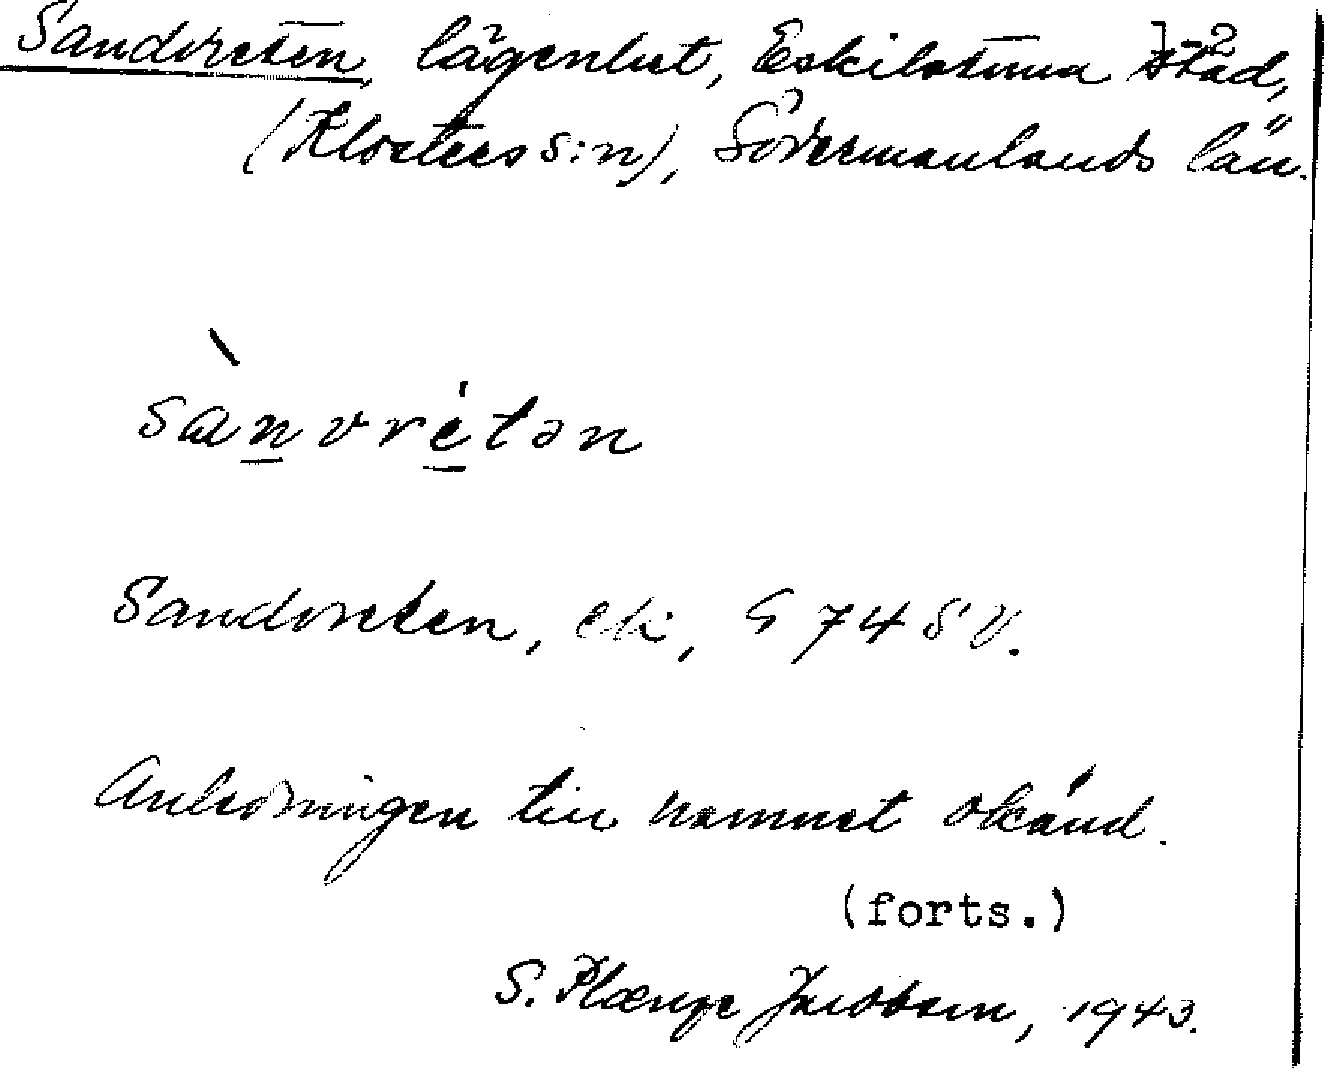 Sandvreten, lägenhet, Eskilstuna stad, 1-2
(Klosters s:n), Södermanlands län.
sanvretən
Sandvreten, ek, G 74 SV.
Anledningen till namnet okänd.
(forts.)
S. Plænge Jacobson, 1943.